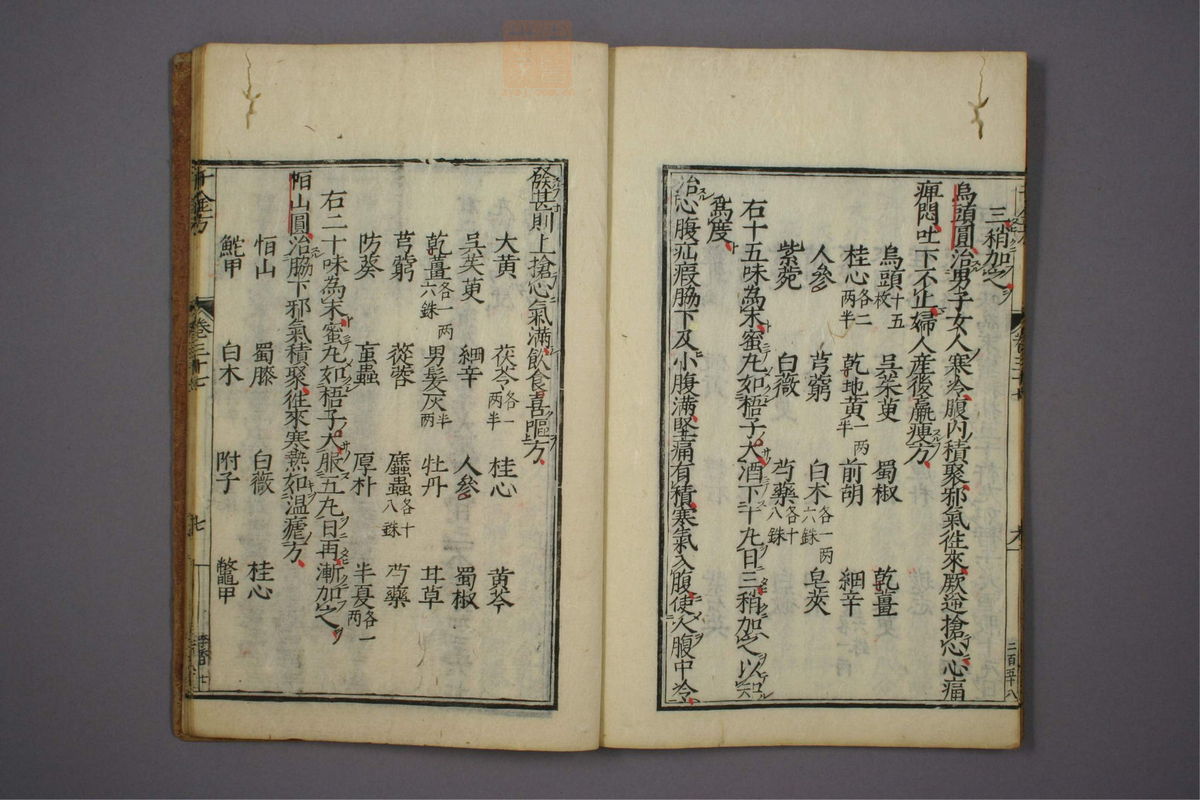 三稍加之
烏頭圓治男子女人寒冷腹内積聚邪氣徃來厥逆搶心心痛
痺悶吐下不止婦人産後羸痩方
烏頭十五枚 吳茱萸 蜀椒 乾薑
桂心各二两半 乾地黄一两半 前胡 細辛
人參 芎藭 白术各一两六銖 皂莢
紫菀 白薇 芍藥各十八銖
右十五味為末蜜丸如梧子大酒下十丸日三稍加之以知
為度
治心腹疝瘕脇下及小腹滿堅痛有積寒氣入腹使人腹中冷
發甚則上搶心氣滿飲食喜嘔方
大黄 茯苓各一两半 桂心 黄芩
吳茱萸 細辛 人參 蜀椒
乾薑各一两六銖 男髮灰半两 牡丹 甘草
芎藭 蓯蓉 䗪蟲各十八銖 芍藥
防葵 䖟蟲 厚朴 半夏各一两
右二十味為末蜜丸如梧子大服五丸日再漸加之
恒山圓治脇下邪氣積聚徃來寒熱如温瘧方
恒山 蜀漆 白薇 桂心
鮀甲 白术 附子 鱉甲
千金方
卷三十七
七